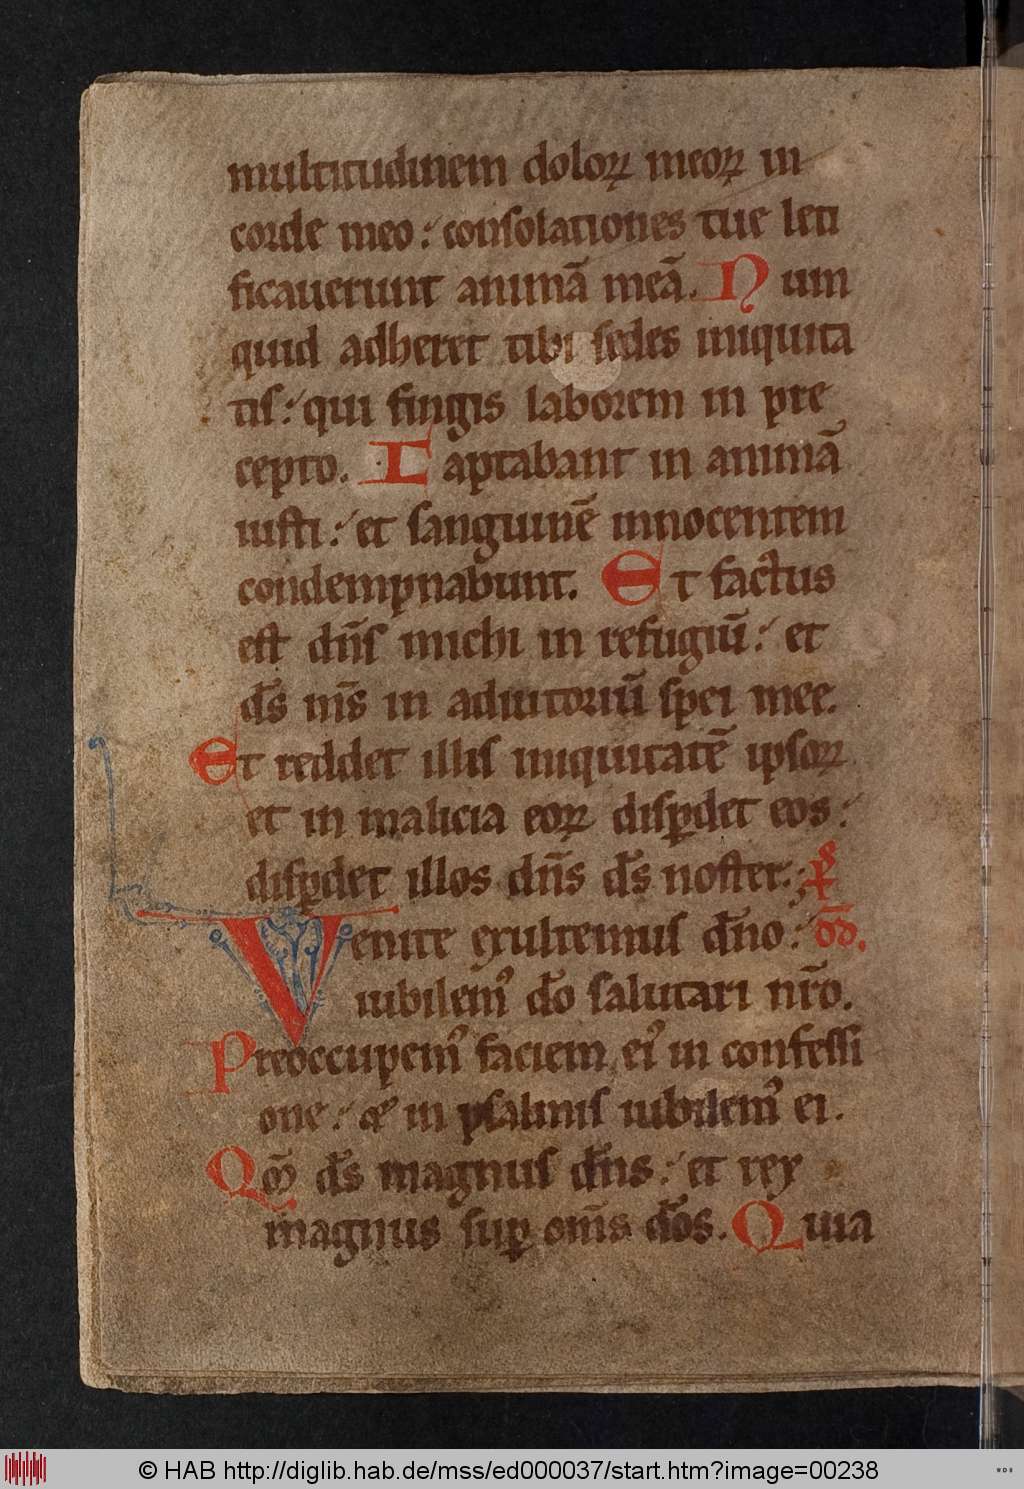 multitudinem doloꝝ meoꝝ in
corde meo : consolationes tue leti
ficauerunt animā meā. Num
quid adheret tibi sedes iniquita
tis : qui fingis laborem in pre
cepto. Captabant in animā
iusti : et sanguinē innocentem
condempnabunt. Et factus
est dn̄s michi in refugiū : et
ds̄ nr̄s in adiutoriū spei mee.
Et reddet illis iniquitatē ipsoꝝ
et in malicia eoꝝ disꝑdet eos :
disꝑdet illos dn̄s ds̄ noster. ps
Venite exultemus dn̄o : dd̄.
iubilemꝰ dō salutari nr̄o.
Preoccupemꝰ faciem eiꝰ in confessi
one : et in psalmis iubilemꝰ ei.
Qm̄ ds̄ magnus dn̄s : et rex
magnus suꝑ om̄s dōs. Quia
© HAB http://diglib.hab.de/mss/ed000037/start.htm?image=00238